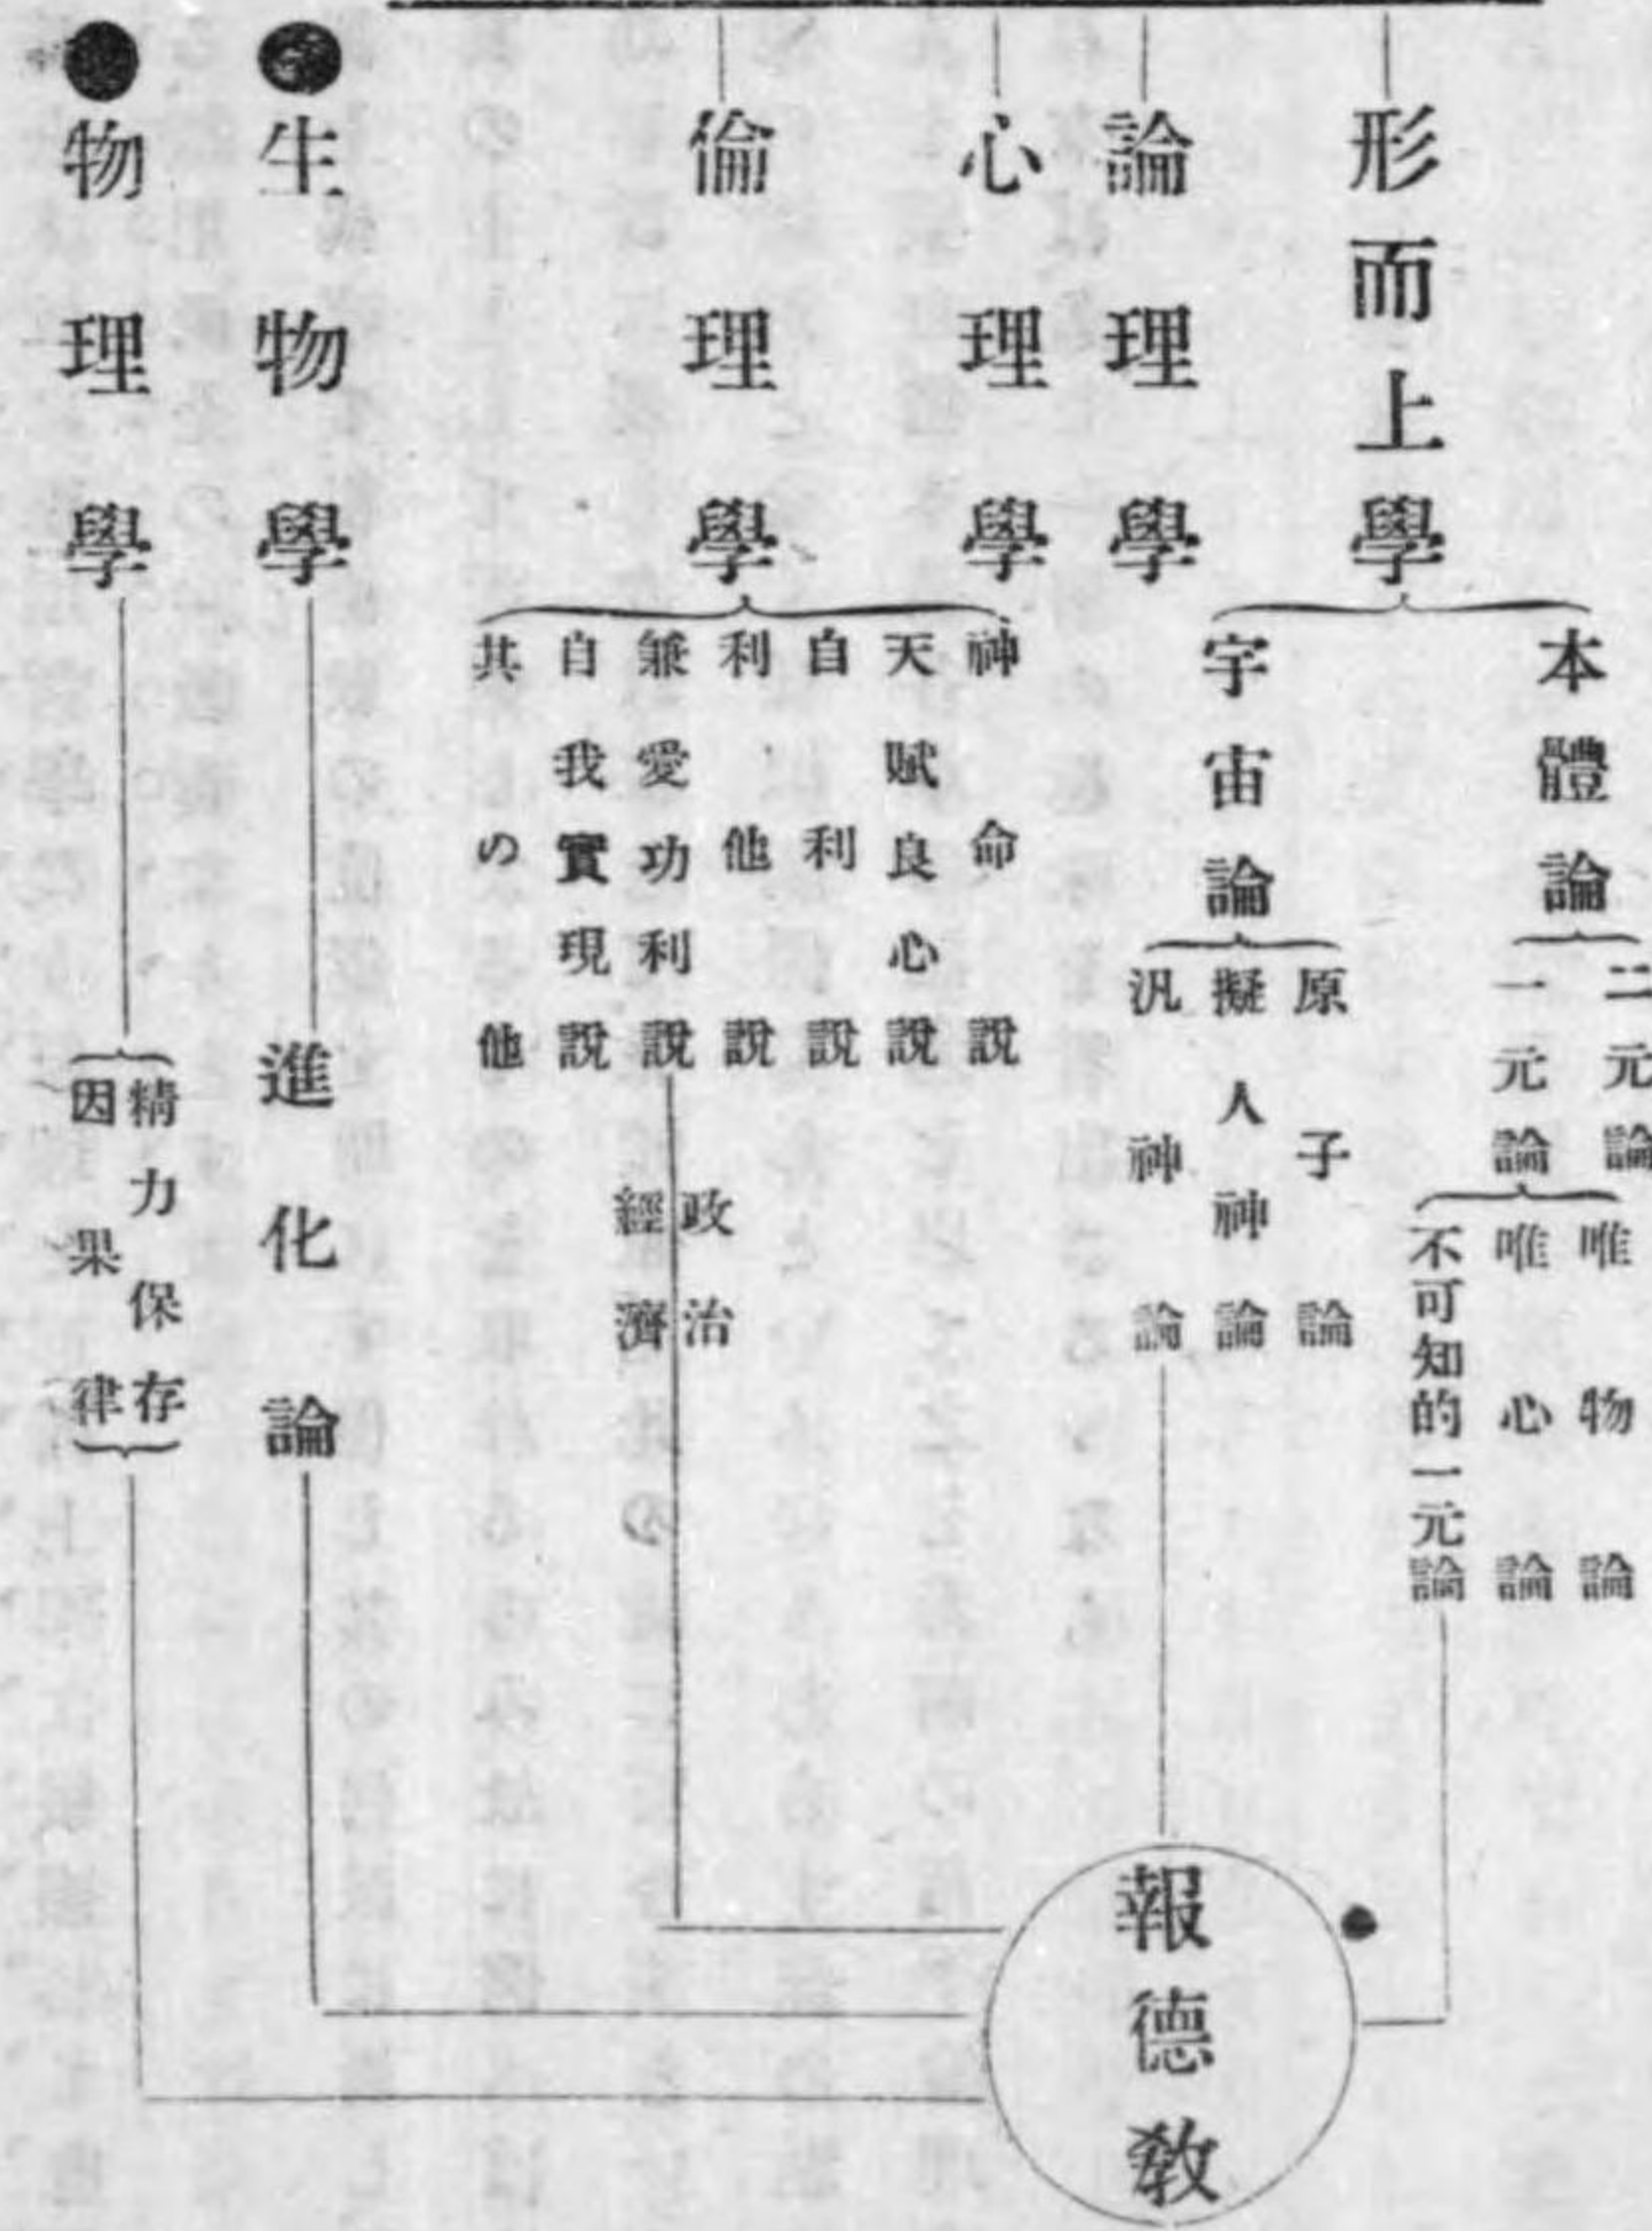 形而上學
本體論
二元論
一元論
唯物論
唯心論
不可知的一元論
宇宙論
原子論
擬人神論
汎神論
論理學
心理學
倫理學
神命說
天賦良心說
自利說
利他說
兼愛功利說
政治
經濟
自我實現說
其の他
生物學
進化論
物理學
精力保存
因果律
報德敎